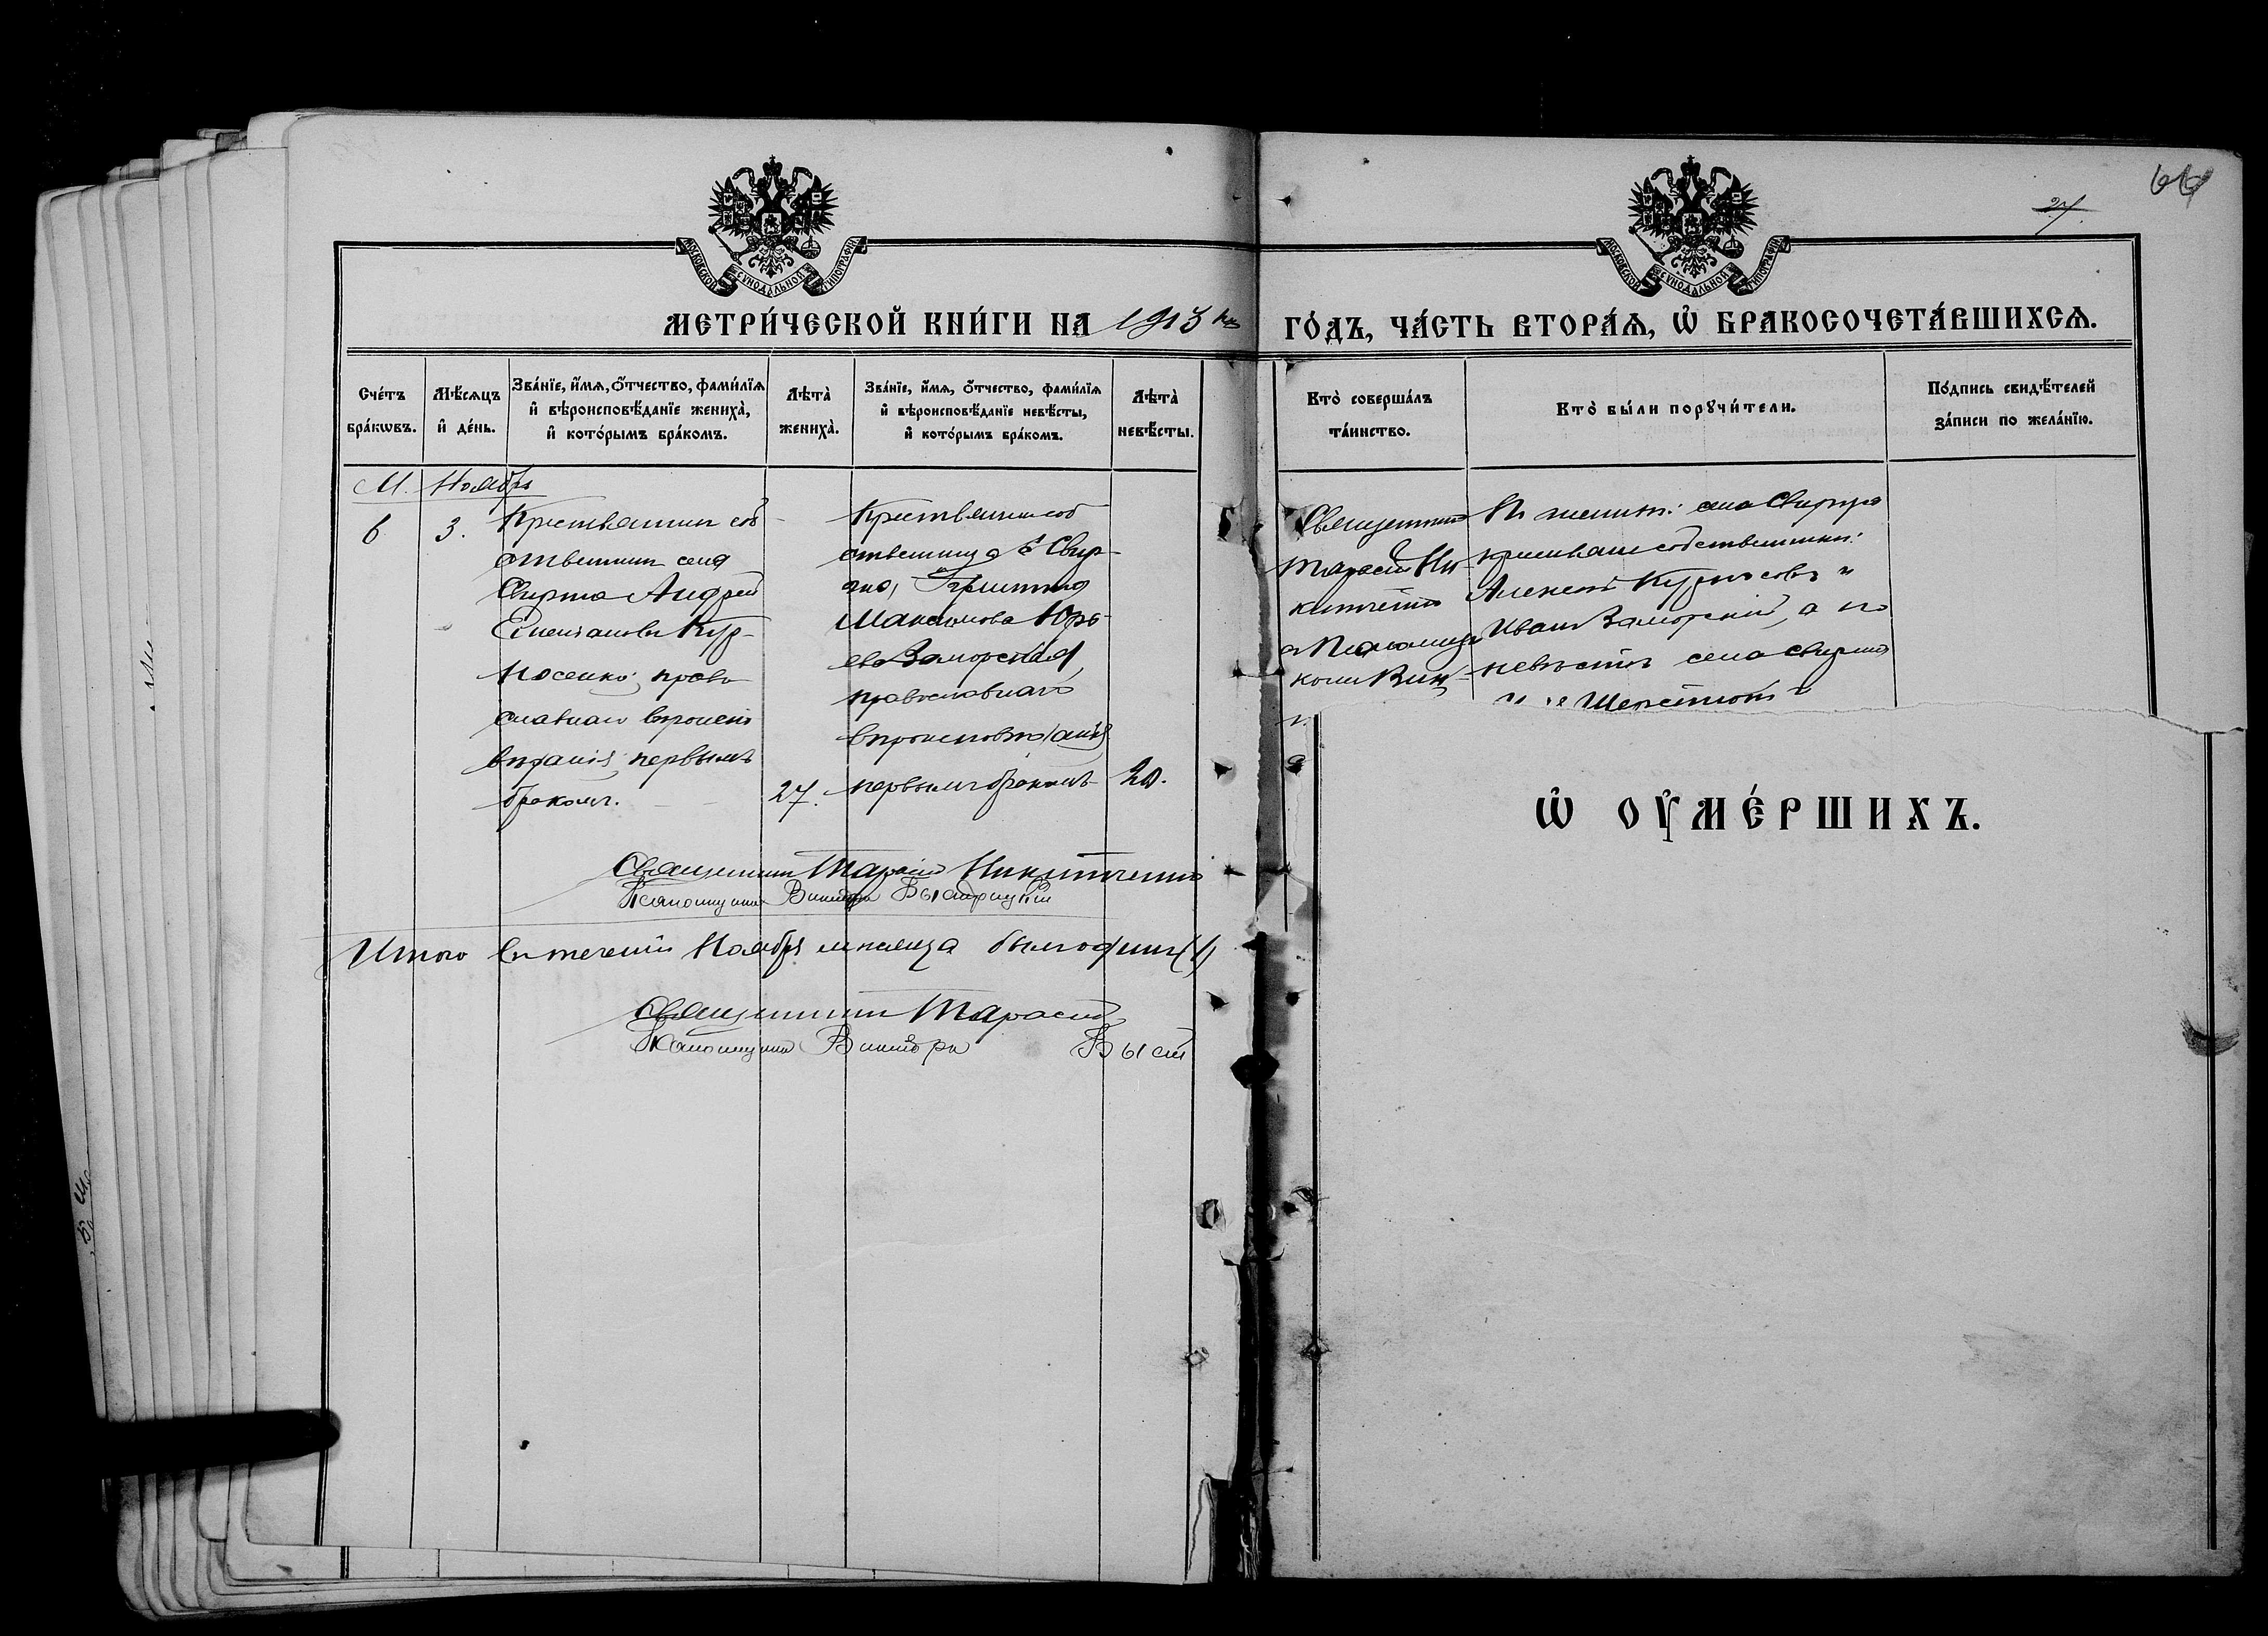 66
27
МОСКОВСКОЙ СѴНОДАЛЬНОЙ ТИПОГРАФІИ
МОСКОВСКОЙ СѴНОДАЛЬНОЙ ТИПОГРАФІИ
МЕТРИ́ЧЕСКОЙ КНИ́ГИ НА 1913 й ГО́ДЪ, ЧА́СТЬ ВТОРА́Ѧ, Ѡ҆ БРАКОСОЧЕТА́ВШИХСѦ.
Сче́тъ
бра́кѡвъ.
Мѣ́сѧцъ
и҆ де́нь.
Зва́нїе, и҆́мѧ, ѻ҆́тчество, фами́лїѧ
и҆ вѣроисповѣ́данїе жениха̀,
и҆ кото́рымъ бра́комъ.
Лѣта̀
жениха̀.
Зва́нїе, и҆́мѧ, ѻ҆́тчество, фами́лїѧ
и҆ вѣроисповѣ́данїе невѣ́сты,
и҆ кото́рымъ бра́комъ.
Лѣта̀
невѣ́сты.
Кто̀ соверша́лъ
та́инство.
Кто̀ бы́ли порꙋчи́тели.
По́дпись свидѣ́телей
за́писи по жела́нїю.
М. Ноябрь
6
3.
Крестьянин соб
ственник села
Свирна Андрей
Кур-
носенко, право
славнаго вероиспо
веданія, первымъ
бракомъ.
27.
Крестьянин соб
ственница с. Свир-
на,
Максимова Юрь-
ева Заморская,
православнаго
вероисповеданія
первымъ бракомъ
20.
Священник
Тарасий Ни-
китченко
а Псаломщи
ком Вик
По жениху: села Свирна
крестьяне собственники:
Алексей Курносовъ и
Иван Заморский, а по
невесте села Свирна
и
Священник Тарасий Никитченко
Псаломщик Виктор
Итого в течении Ноября месяца было один (1)
Священник Тарасий
Псаломщик Виктор Выст
Ѡ҆ ОУ҆МЕ́РШИХЪ.